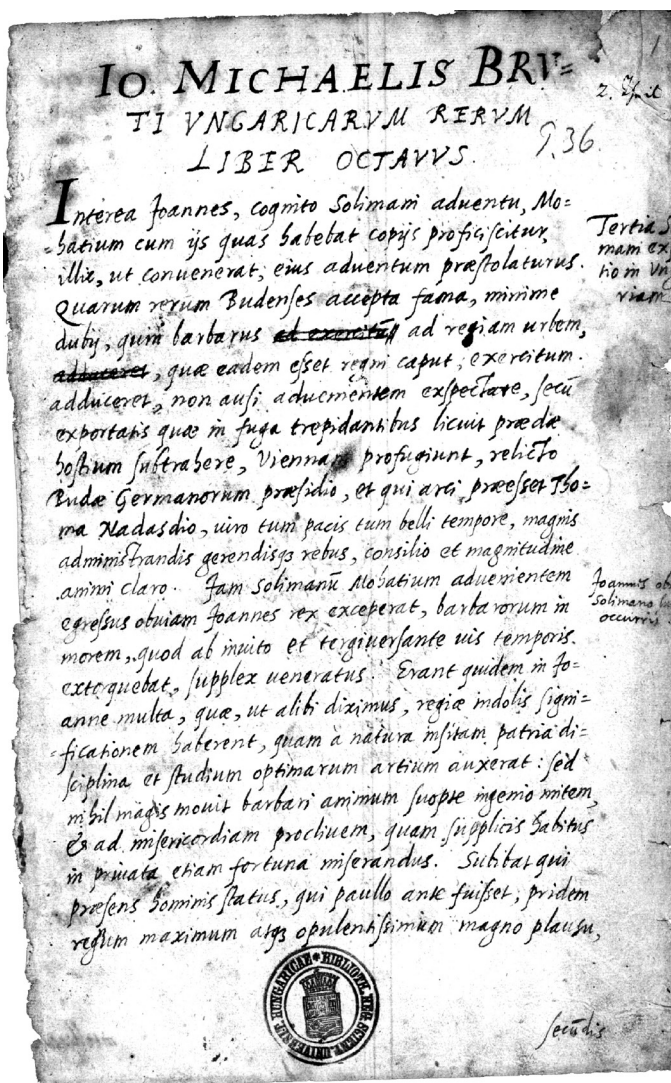 IO. MICHAELIS BRV=
TI VNGARICARVM RERVM
LIBER OCTAVVS.
936
Interea Joannes, cognito Solimani aduentu, Mo=
hatium cum ijs quas habebat copijs proficiscitur,
illic, ut conuenerat, eius aduentum præstolaturus.
Quarum rerum Budenses accepta fama, minime
dubij, quin barbarus ad exercitũ ad regiam urbem,
adduceret, quæ eadem esset regni caput, exercitum
adduceret, non ausi aduenientem exspectare, secũ
exportatis quæ in fuga trepidantibus licuit prædæ
hostium subtrahere, Viennam profugiunt, relicto
Budæ Germanorum præsidio, et qui arci præesset Tho=
ma Nadasdio, uiro tum pacis tum belli tempore, magnis
administrandis gerendisqȝ rebus, consilio et magnitudine
animi claro. Jam Solimanũ Mohatium aduenientem
egressus obuiam Joannes rex exceperat, barbarorum in
morem, quod ab inuito et tergiuersante uis temporis
extorquebat, supplex ueneratus. Erant quidem in Jo=
anne multa, quæ, ut alibi diximus, regiæ indolis signi=
ficationem haberent, quam à natura insitam patria di=
sciplina et studium optimarum artium auxerat: sed
nihil magis mouit barbari animum suopte ingenio mitem,
& ad misericordiam procliuem, quam supplicis habitus
in priuata etiam fortuna miserandus. Subibat qui
præsens hominis status, qui paullo ante fuisset; pridem
regum maximum atqȝ opulentissimum magno plausu,
secũdis
Tertia
mam ex
tio in Vn
riam
Joannis ob
Solimano
occurrit